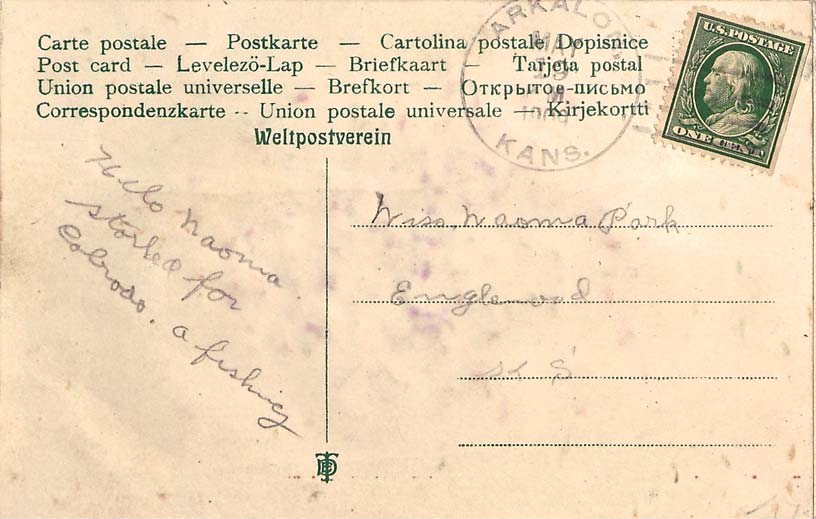 Carte postale — Postkarte — Cartolina postale Dopisnice
Post card — Levelezö-Lap — Briefkaart — Tarjeta postal
Union postale universelle — Brefkort — Открытое-письмо
Correspondenzkarte -- Union postale universale — Kirjekortti
Weltpostverein
ARKALON
MAY
KANS.
U.S. POSTAGE
ONE CENT
Hello Naoma
started for
Colorado. a fishing
Miss. Naoma Park
Englewood
KS